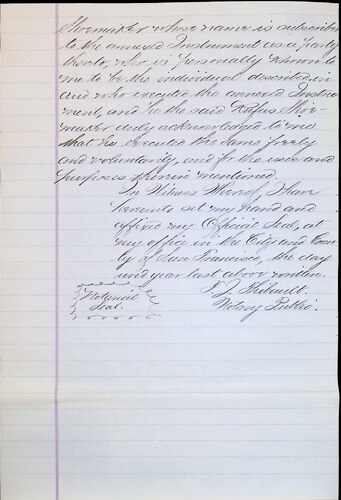 Shoemaker whose name is subscribed
to the annexed Instrument as a party
thereto, who is personally known to
me to be the individual described in
and who executed the annexed Instru-
ment, and he the said Rufus Shoe-
maker duly acknowledged to me
that he executed the same freely
and voluntarily, and for the uses and
purposes therein mentioned.
In Witness Whereof, I have
hereunto set my hand and
affixed my Official Seal, at
my office in the City and Coun-
ty of San Francisco, the day
and year last above written.
F. J. Thibault
Notary Public
Notarial
Seal.